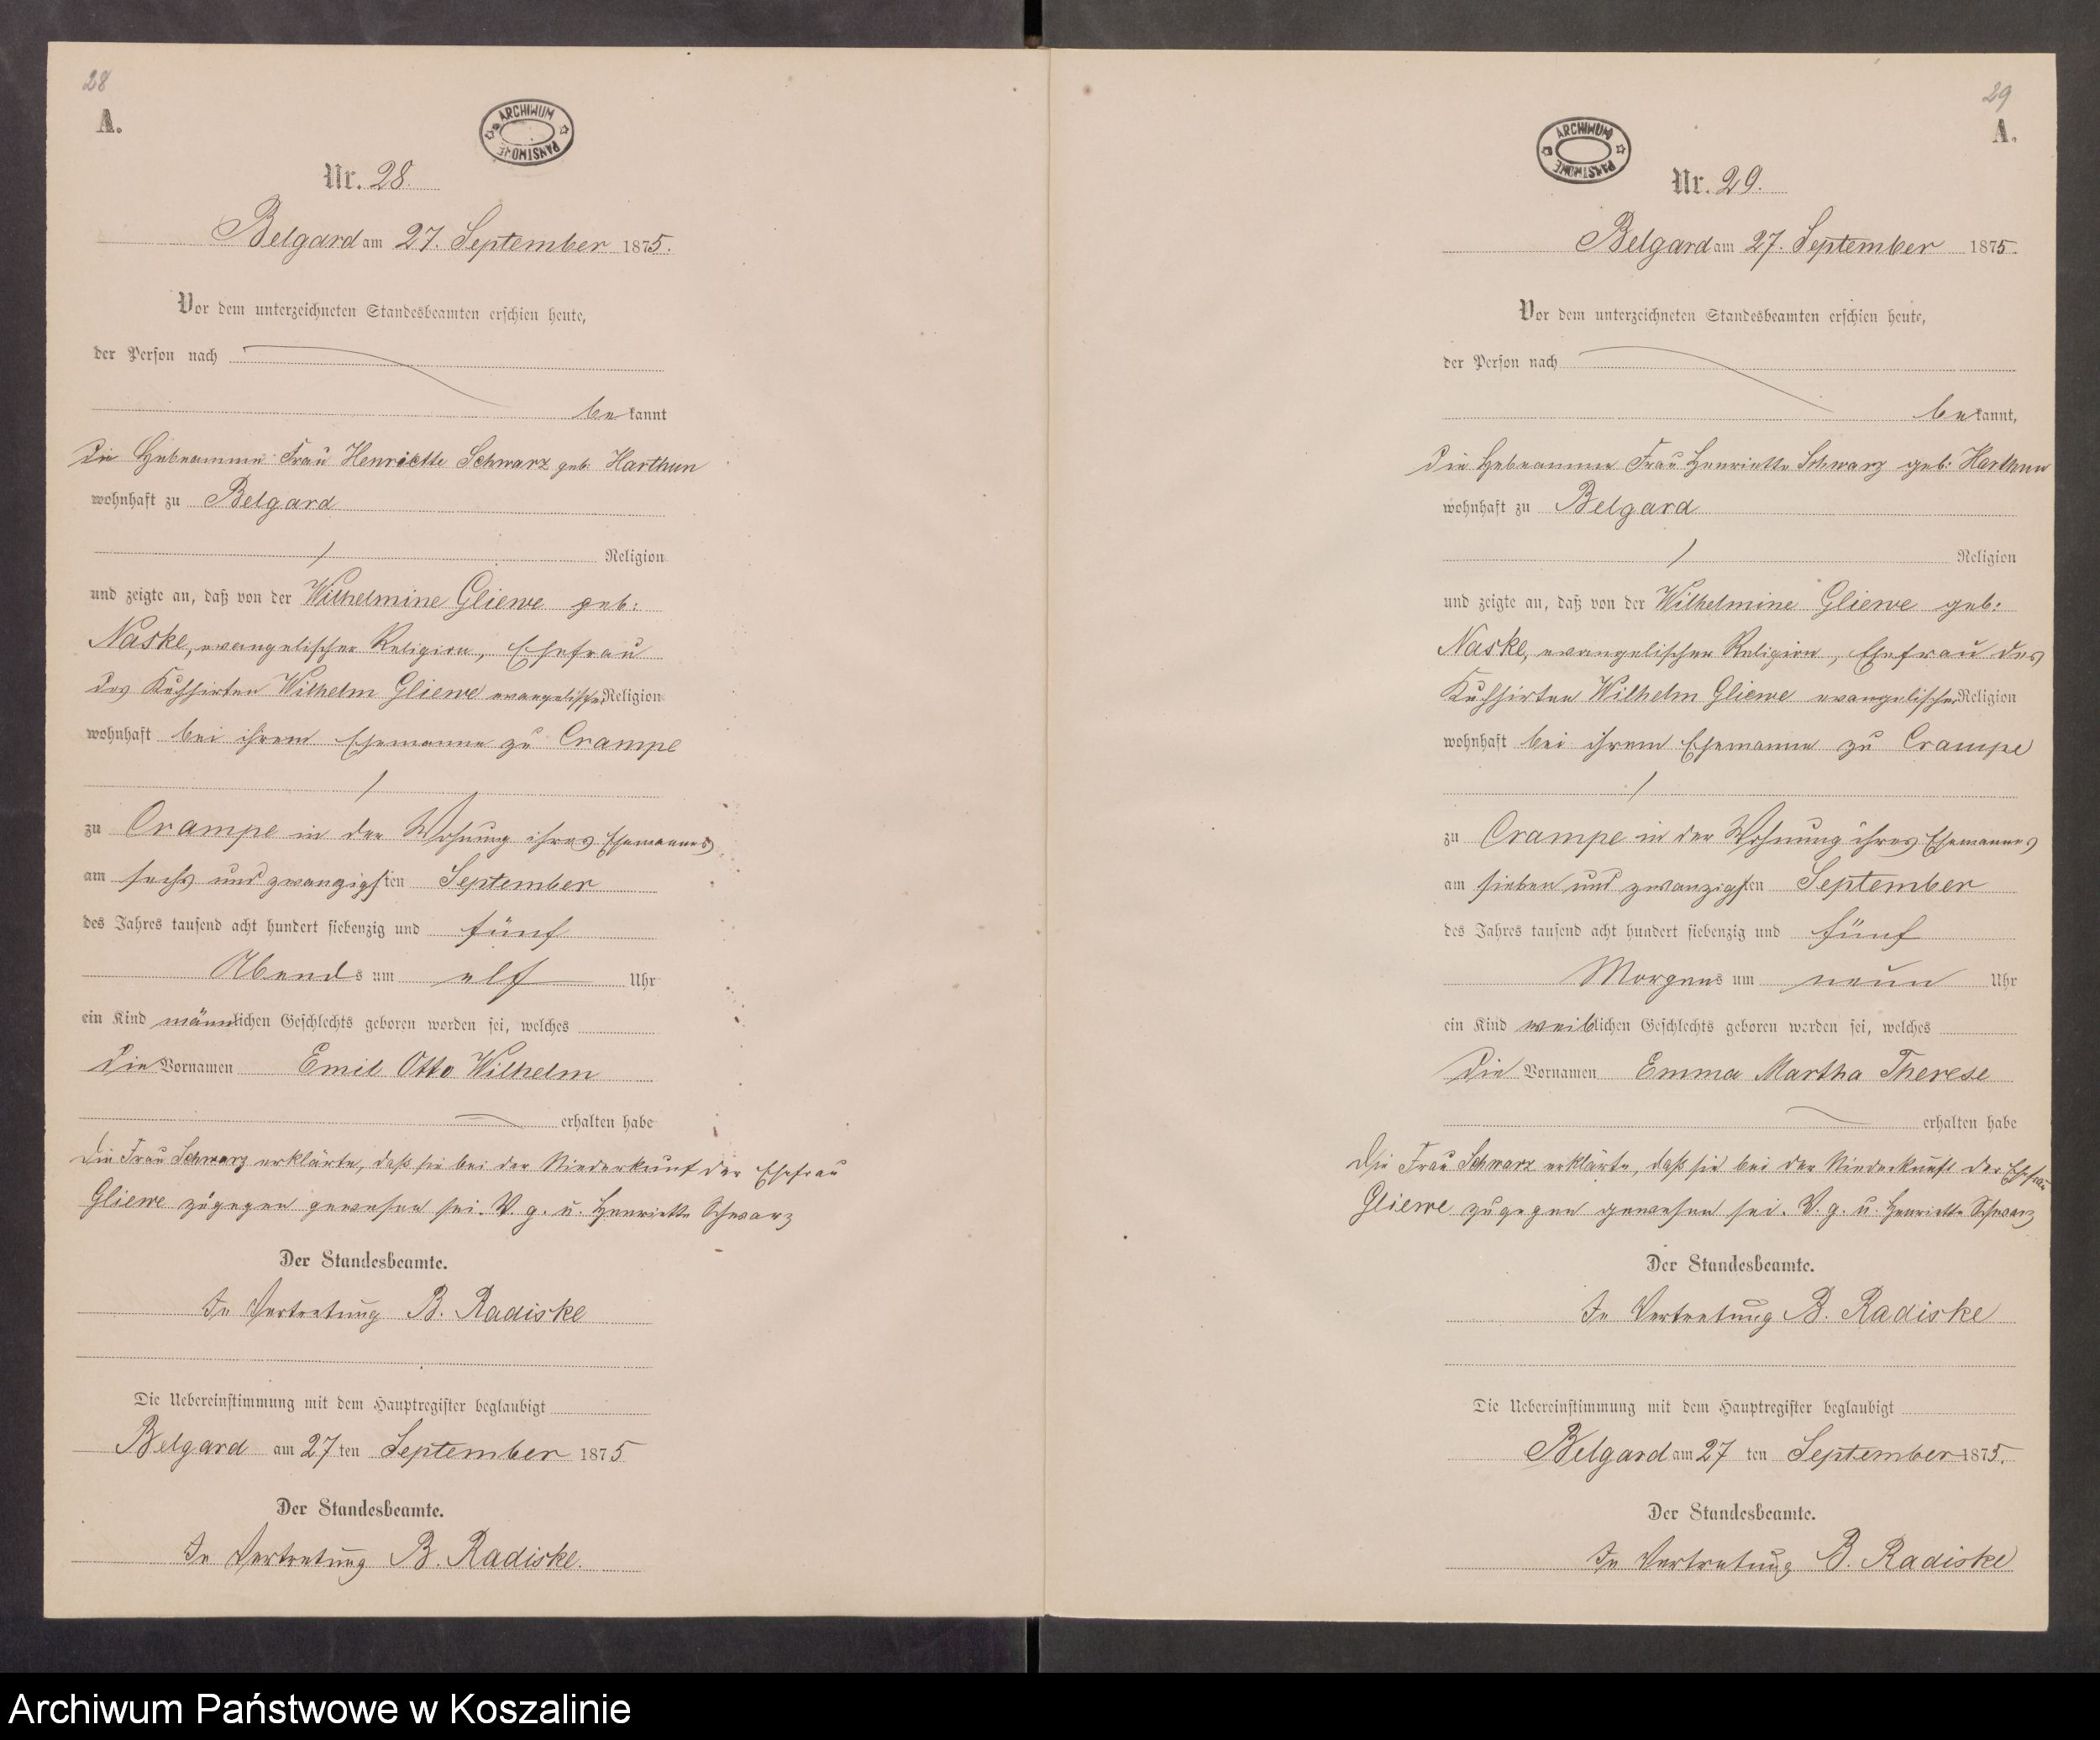 28
A.
ARCHIWUM PAŃSTWOWE
Nr. 28.
Belgard am 27. September 1875.
Vor dem unterzeichneten Standesbeamten erschien heute,
der Person nach
bekannt
die Hebeamme Frau Henriette Schwarz geb. Harthun
wohnhaft zu Belgard
Religion
und zeigte an, daß von der Wilhelmine Gliewe geb:
Naske, evangelischer Religion, Ehefrau
des Kuhhirten Wilhelm Gliewe evangelischer Religion
wohnhaft bei ihrem Ehemanne zu Crampe
zu Crampe in der Wohnung ihres Ehemannes
am sechs und zwanzigsten September
des Jahres tausend acht hundert siebenzig und fünf
Abends um elf Uhr
ein Kind männlichen Geschlechts geboren worden sei, welches
die Vornamen Emil Otto Wilhelm
erhalten habe
Die Frau Schwarz erklärte, daß sie bei der Niederkunf der Ehefrau
Gliewe zugegen gewesen sei. V. g. u. Henriette Schwarz
Der Standesbeamte.
In Vertretung B. Radiske
Die Uebereinstimmung mit dem Hauptregister beglaubigt
Belgard am 27 ten September 1875
Der Standesbeamte.
In Vertretung B. Radiske.
29
A.
ARCHIWUM PAŃSTWOWE
Nr. 29.
Belgard am 27. September 1875.
Vor dem unterzeichneten Standesbeamten erschien heute,
der Person nach
bekannt,
die Hebeamme Frau Henriette Schwarz geb: Harthun
wohnhaft zu Belgard
Religion
und zeigte an, daß von der Wilhelmine Gliewe geb:
Naske, evangelischer Religion, Ehefrau des
Kuhhirten Wilhelm Gliewe evangelischer Religion
wohnhaft bei ihrem Ehemanne zu Crampe
zu Crampe in der Wohnung ihres Ehemannes
am sieben und zwanzigsten September
des Jahres tausend acht hundert siebenzig und fünf
Morgens um neun Uhr
ein Kind weiblichen Geschlechts geboren worden sei, welches
die Vornamen Emma Martha Therese
erhalten habe
Die Frau Schwarz erklärte, daß sie bei der Niederkunft der Ehefrau
Gliewe zugegen gewesen sei. V. g. u. Henriette Schwarz
Der Standesbeamte.
In Vertretung B. Radiske
Die Uebereinstimmung mit dem Hauptregister beglaubigt
Belgard am 27 ten September 1875.
Der Standesbeamte.
In Vertretung B. Radiske
Archiwum Państwowe w Koszalinie